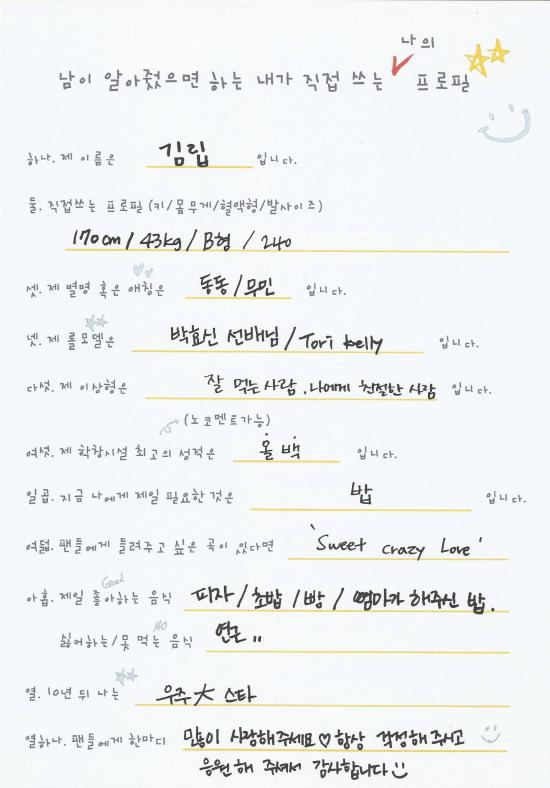 나의
남이 알아줬으면 하는 내가 직접 쓰는 프로필
하나. 제 이름은 김립 입니다.
둘. 직접쓰는 프로필 (키/몸무게/혈액형/발사이즈)
170cm / 43kg / B형 / 240
셋. 제 별명 혹은 애칭은 동동 / 무민 입니다.
넷. 제 롤모델은 박효신 선배님 / Tori kelly 입니다.
다섯. 제 이상형은 잘 먹는 사람. 나에게 친절한 사람 입니다.
(노코멘트가능)
여섯. 제 학창시절 최고의 성적은 올 백 입니다.
일곱. 지금 나에게 제일 필요한 것은 밥 입니다.
여덟. 팬들에게 들려주고 싶은 곡이 있다면 'Sweet crazy Love'
Good
아홉. 제일 좋아하는 음식 피자 / 초밥 / 빵 / 엄마가 해주신 밥.
NO
싫어하는/못 먹는 음식 연근 ..
열. 10년 뒤 나는 우주 大 스타
열하나. 팬들에게 한마디 많이 사랑해주세요♡ 항상 걱정해 주시고
응원해 주셔서 감사합니다